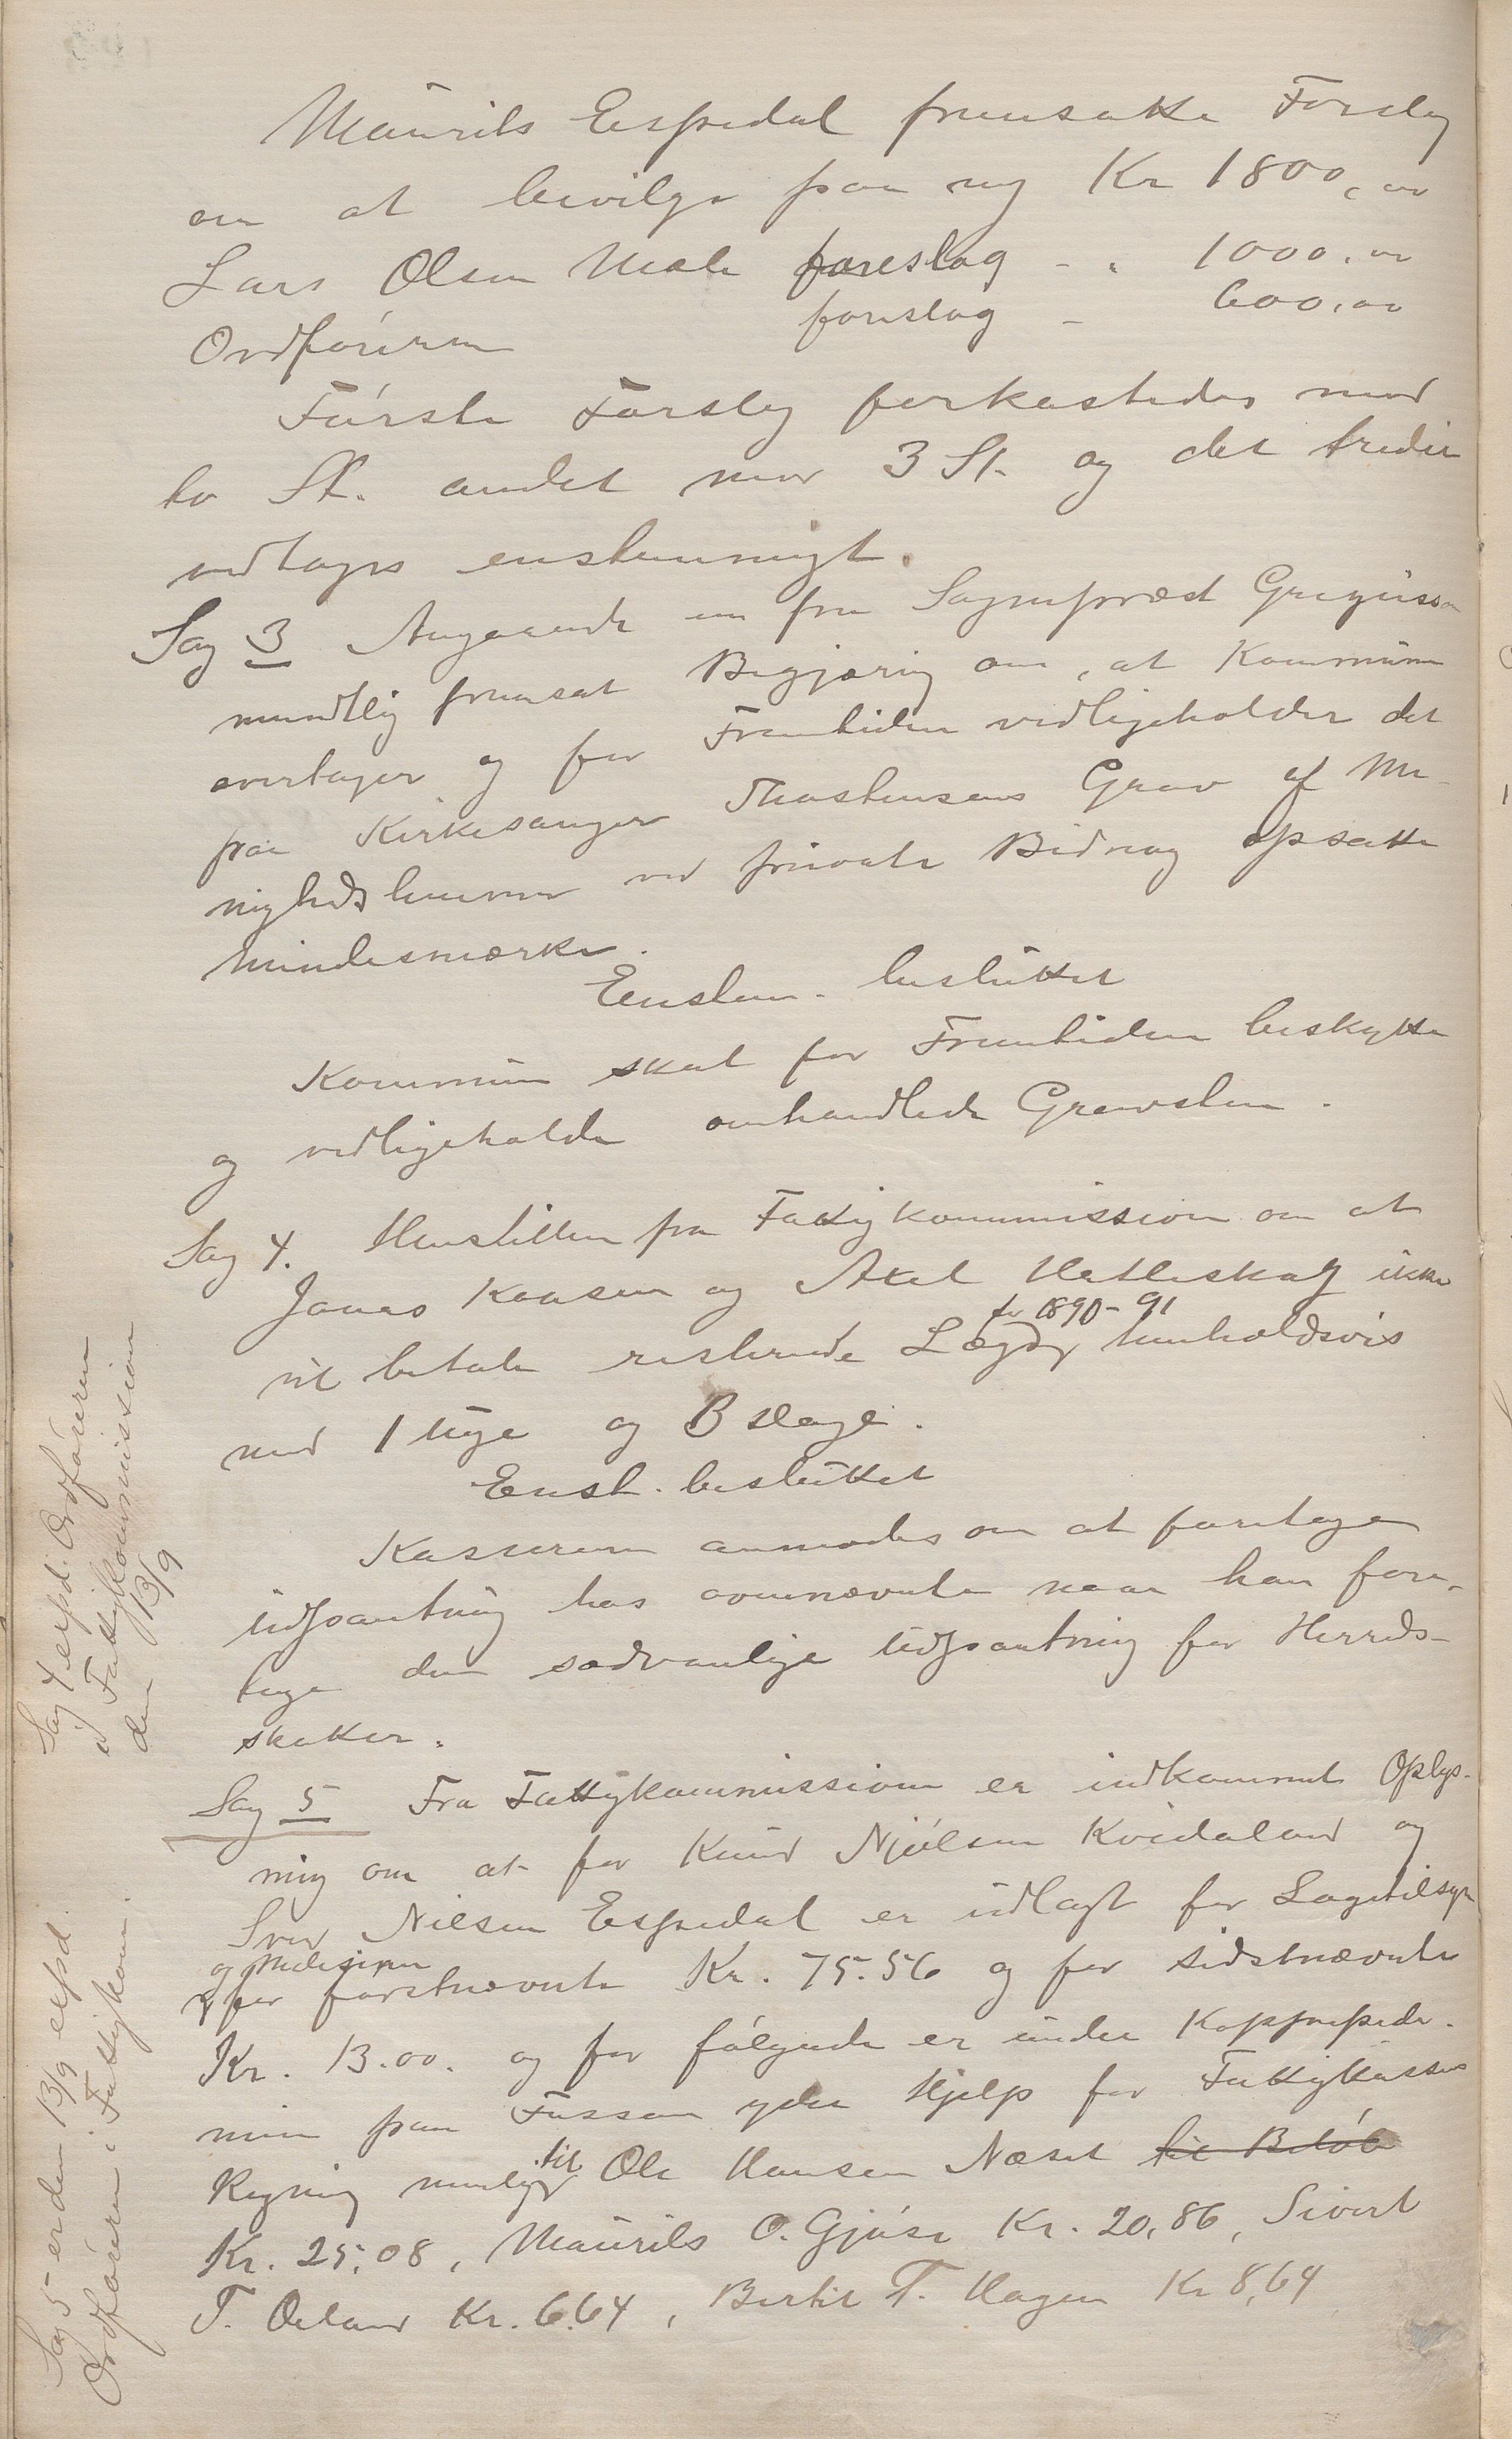 Maurits Espedal fremsatte Forslag
om at bevilge paa ny Kr 1800,00
Lars Olsen Mæle foreslog - " 1000.00
Ordføreren foreslog - 600,00
Første Forslag forkastedes mod
to St. andet mod 3 St. og det tredie
vedtoges enstemmigt.
Sag 3 Angaaende en fra Sognepræst Gregusson
mundtlig fremsat Begjæring om, at Kommunen
overtager og for Fremtiden vedligeholder det
paa Kirkesanger Thorstensens Grav af Me-
nighedslemmer ved private Bidrag opsatte
Mindesmærke.
Enstem. besluttet
Kommunen skal for Fremtiden beskytte
og vedligeholde omhandlede Gravsten.
Sag 4. Henstillen fra Fattigkommissionen om at
Jonas Kaasen og Axel Hetleskog ikke
for 1890-91
vil betale resterende Lægd henholdsvis
med 1 Uge og 3 Dage.
Enst. besluttet
Kassereren anmodes om at foretage
Udpantning hos ovennævnte naar han fore-
tage den sædvanlige Udpantning for Herreds-
skatter.
Sag 5 Fra Fattigkommissionen er indkommet Oplys-
ning om at for Knud Njølsen Kvidaland og
Sven Nilsen Espedal er udlagt for Lægetilsyn
og Medisiner
for førstnævnte Kr. 75.56 og for sidstnævnte
Kr. 13.00. og for følgende er under Koppeepide-
mien paa Fossan ydet Hjelp for Fattigkassens
Regning nemlig til Ole Hansen Næset til Beløb
Kr. 25,08, Maurits O. Gjøse Kr. 20,86, Sivert
T. Øeland Kr. 6.64, Bertil T. Hagen Kr 8,64
Sag 4 expd. Ordføreren
i Fattigkommissionen
den 13/9
Sag 5 er den 13/9 expd.
Ordføreren i Fattigkom.